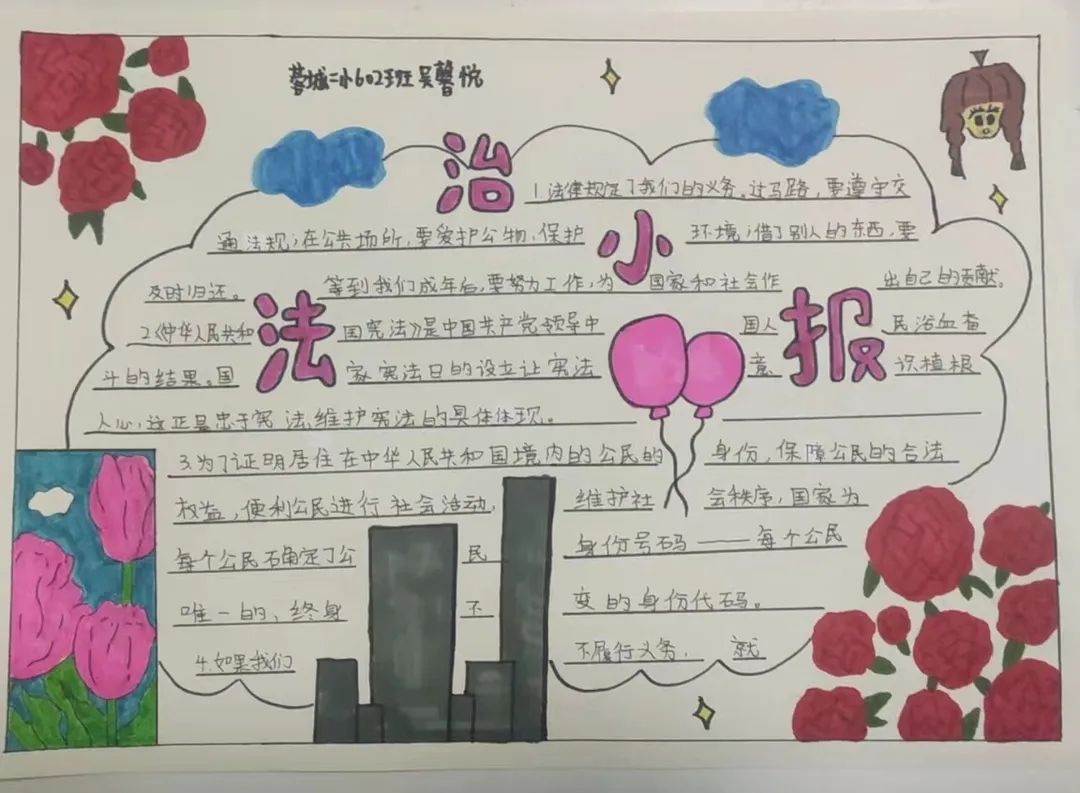 蓉城二小602班吴馨悦
法治小报
1.法律规定了我们的义务。过马路，要遵守交
通法规；在公共场所，要爱护公物、保护环境；借了别人的东西，要
及时归还。等到我们成年后，要努力工作，为国家和社会作出自己的贡献。
2.《中华人民共和国宪法》是中国共产党领导中国人民浴血奋
斗的结果。国家宪法日的设立让宪法意识植根
人心，这正是忠于宪法、维护宪法的具体体现。
3.为了证明居住在中华人民共和国境内的公民的身份，保障公民的合法
权益，便利公民进行社会活动，维护社会秩序，国家为
每个公民确定了公民身份号码——每个公民
唯一的、终身不变的身份代码。
4.如果我们不履行义务，就